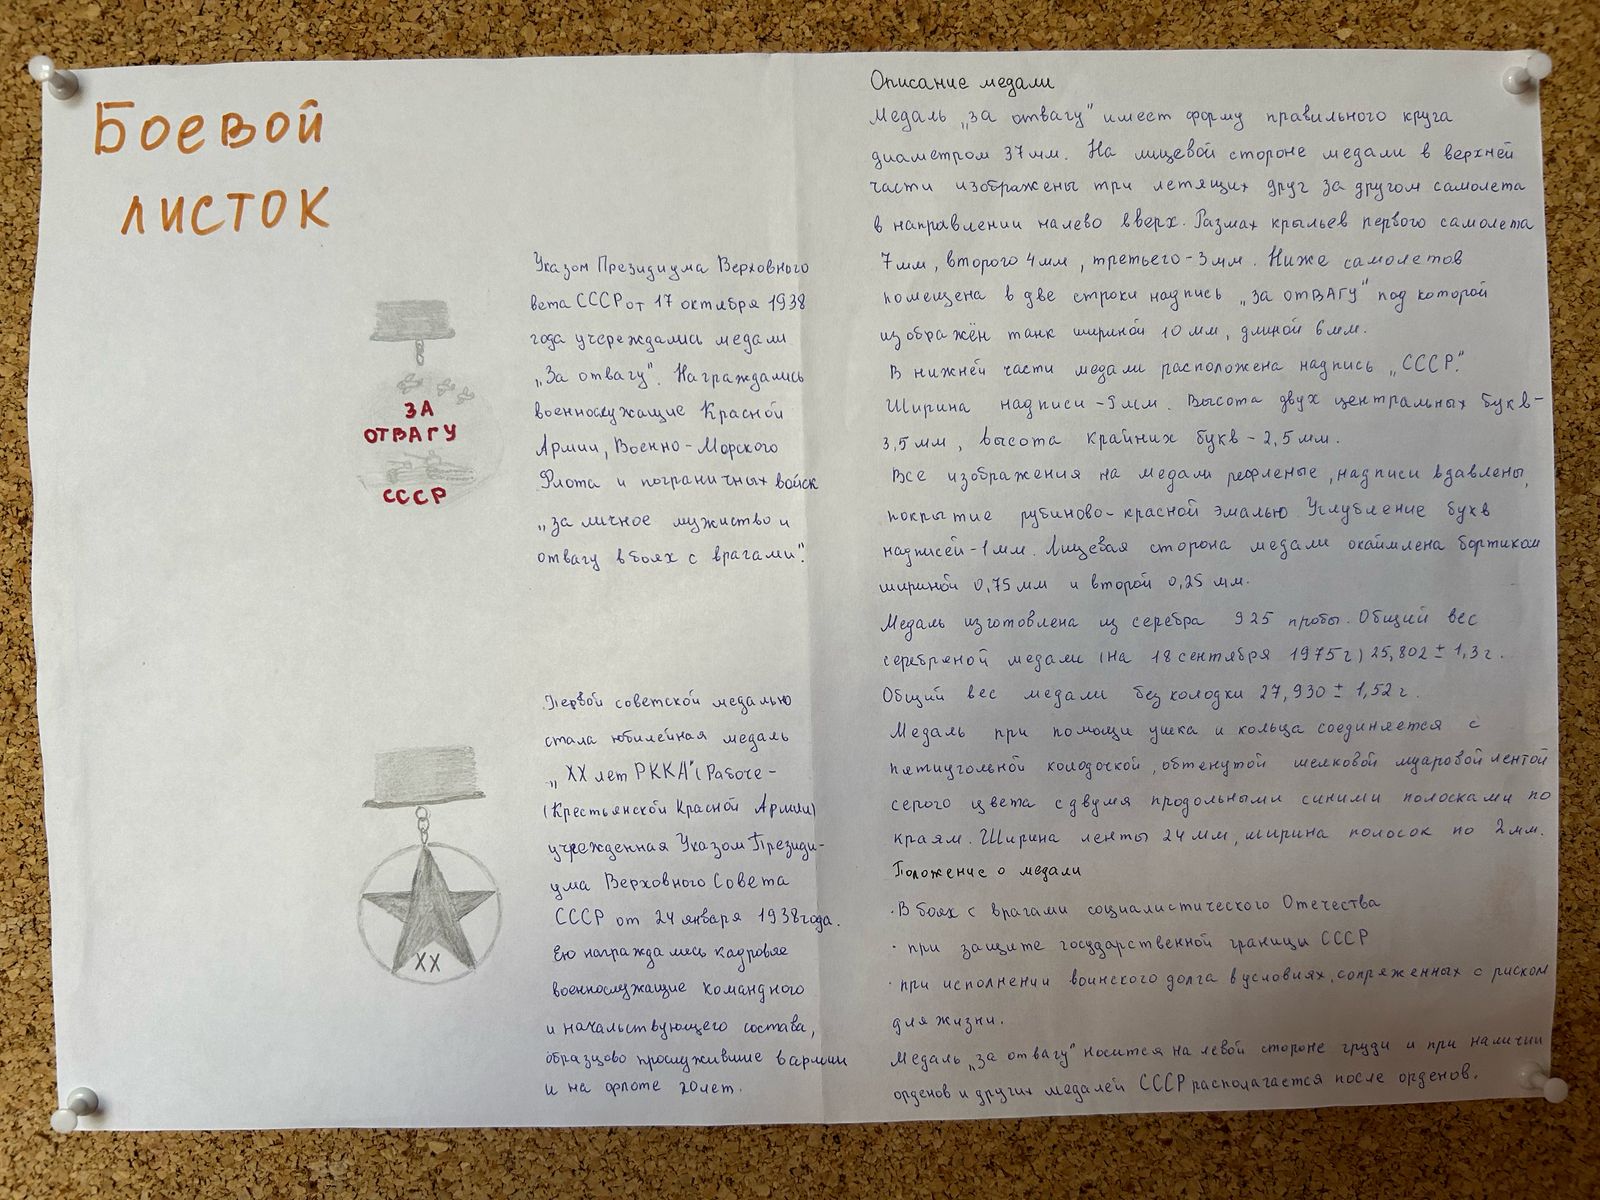 Боевой
листок
ЗА
ОТВАГУ
СССР
Указом Президиума Верховного
вета СССР от 17 октября 1938
года учереждались медали
„За отвагу". Награждались
военнослужащие Красной
Армии, Военно-Морского
Флота и пограничных войск
„за личное мужиство и
отвагу в боях с врагами".
XX
Первой советской медалью
стала юбилейная медаль
„XX лет РККА" (Рабоче-
(Крестьянской Красной Армии)
учрежденная Указом Президи-
ума Верховного Совета
СССР от 24 января 1938 года.
Ею награждались кадровые
военнослужащие командного
и начальствующего состава,
образцово прослужившие в армии
и на флоте 20 лет.
Описание медали
Медаль „за отвагу" имеет форму правильного круга
диаметром 37 мм. На лицевой стороне медали в верхней
части изображены три летящих друг за другом самолета
в направлении налево вверх. Размах крыльев первого самолета
7 мм, второго 4 мм, третьего - 3 мм. Ниже самолетов
помещена в две строки надпись „за отВАГУ" под которой
изображён танк шириной 10 мм, длиной 6 мм.
В нижней части медали расположена надпись „СССР".
Ширина надписи - 9 мм. Высота двух центральных букв-
3,5 мм, высота крайних букв - 2,5 мм.
Все изображения на медали рефленые, надписи вдавлены,
покрытие рубиново-красной эмалью. Углубление букв
надписей - 1 мм. Лицевая сторона медали окаймлена бортиком
шириной 0,75 мм и второй 0,25 мм.
Медаль изготовлена из серебра 925 пробы. Общий вес
серебряной медали (на 18 сентября 1975 г) 25,802 ± 1,3 г.
Общий вес медали без колодки 27,930 ± 1,52 г.
Медаль при помощи ушка и кольца соединяется с
пятиугольной колодочкой, обтенутой шелковой муаровой лентой
серого цвета с двумя продольными синими полосками по
краям. Ширина ленты 24 мм, ширина полосок по 2 мм.
Положение о медали
· В боях с врагами социалистического Отечества
· при защите государственной границы СССР
· при исполнении воинского долга в условиях, сопряженных с риском
для жизни.
Медаль „за отвагу" носится на левой стороне груди и при наличии
орденов и других медалей СССР располагается после орденов.